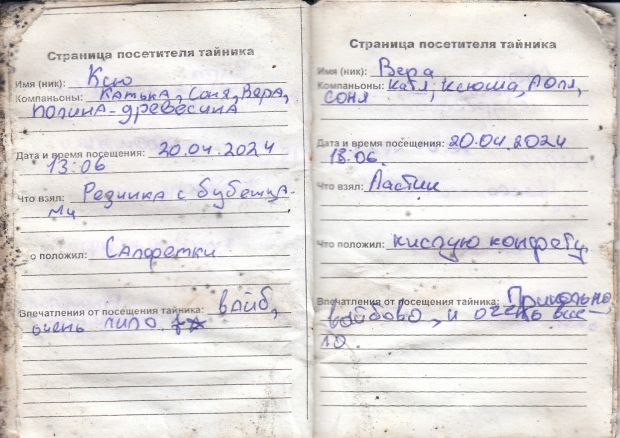 Страница посетителя тайника
Имя (ник): Ксю
Компаньоны: Катька, Соня, Вера,
Полина-древесина
Дата и время посещения: 20.04.2024
13:06
Что взял: Резинка с бубенца-
ми
о положил: Салфетки
Впечатления от посещения тайника: вайб,
очень мило
Страница посетителя тайника
Имя (ник): Вера
Компаньоны: Катя, Ксюша, Поля,
Соня
Дата и время посещения: 20.04.2024
13:06.
Что взял: Ластик
Что положил: кислую конфету
Впечатления от посещения тайника: Прикольно,
вайбово, и очень весе-
ло.